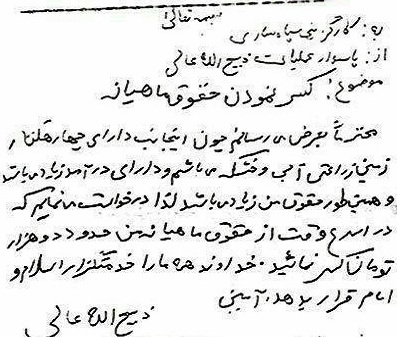 بسمه تعالی
به: کارگزینی سپاه ساری
از: پاسدار عملیات ذبیح الله عالی
موضوع: کسر نمودن حقوق ماهیانه
محترماً بعرض می رسانم چون اینجانب دارای چهار هکتار
زمین زراعتی آبی و خشکه می باشم و دارای درآمد زیاد می باشد
و همینطور حقوق من زیاد می باشد لذا درخواست می نمایم که
در اسرع وقت از حقوق ماهیانه من حدود دو هزار
تومان کسر نمائید. خداوند همه ما را خدمتگزار اسلام و
امام قرار بدهد. آمین
ذبیح الله عالی